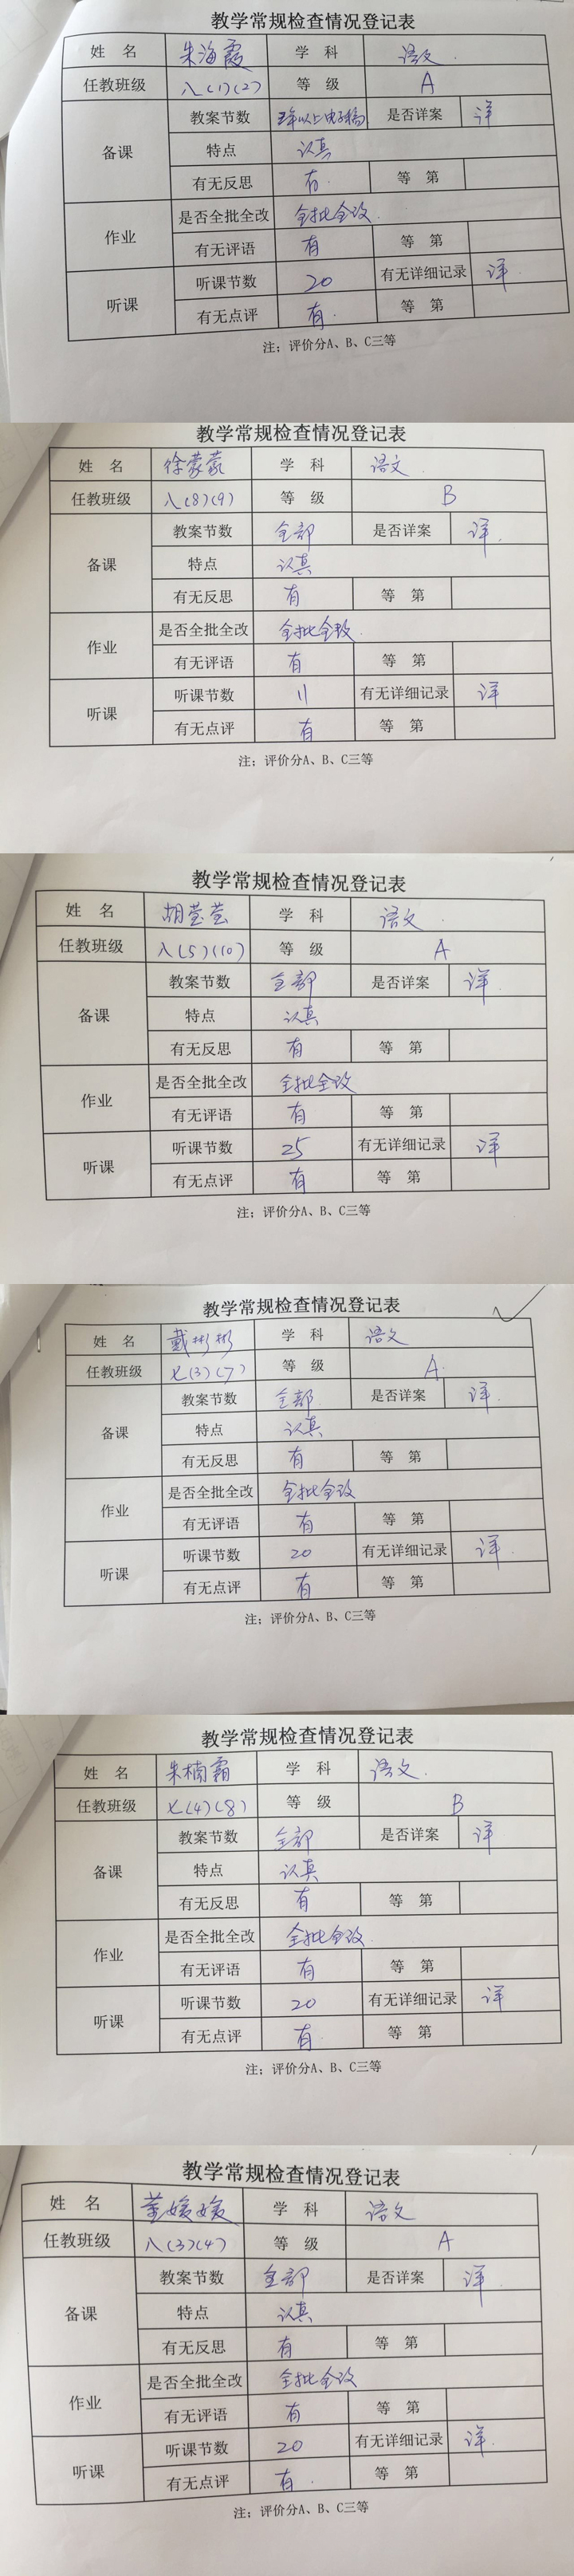 教学常规检查情况登记表
姓 名 朱海霞 学 科 语文.
任教班级 八(1)(2) 等 级 A
备课 教案节数 五年以上电子稿 是否详案 详
特点 认真
有无反思 有. 等 第
作业 是否全批全改 全批全改.
有无评语 有 等 第
听课 听课节数 20 有无详细记录 详.
有无点评 有. 等 第
注：评价分A、B、C三等
教学常规检查情况登记表
姓 名 徐蒙蒙 学 科 语文.
任教班级 八(8)(9) 等 级 B
备课 教案节数 全部 是否详案 详.
特点 认真
有无反思 有 等 第
作业 是否全批全改 全批全改.
有无评语 有 等 第
听课 听课节数 11 有无详细记录 详
有无点评 有 等 第
注：评价分A、B、C三等
教学常规检查情况登记表
姓 名 胡莹莹 学 科 语文.
任教班级 八(5)(10) 等 级 A
备课 教案节数 全部 是否详案 详.
特点 认真
有无反思 有 等 第
作业 是否全批全改 全批全改
有无评语 有 等 第
听课 听课节数 25 有无详细记录 详
有无点评 有 等 第
注：评价分A、B、C三等
教学常规检查情况登记表
姓 名 戴彬彬 学 科 语文
任教班级 七(3)(7) 等 级 A.
备课 教案节数 全部. 是否详案 详.
特点 认真
有无反思 有 等 第
作业 是否全批全改 全批全改
有无评语 有 等 第
听课 听课节数 20 有无详细记录 详.
有无点评 有 等 第
注：评价分A、B、C三等
教学常规检查情况登记表
姓 名 朱楠霜 学 科 语文.
任教班级 七(4)(8) 等 级 B
备课 教案节数 全部 是否详案 详
特点 认真
有无反思 有 等 第
作业 是否全批全改 全批全改.
有无评语 有 等 第
听课 听课节数 20 有无详细记录 详
有无点评 有. 等 第
注：评价分A、B、C三等
教学常规检查情况登记表
姓 名 董媛媛 学 科 语文
任教班级 八(3)(4) 等 级 A
备课 教案节数 全部 是否详案 详
特点 认真
有无反思 有 等 第
作业 是否全批全改 全批全改
有无评语 有 等 第
听课 听课节数 20 有无详细记录 详.
有无点评 有. 等 第
注：评价分A、B、C三等